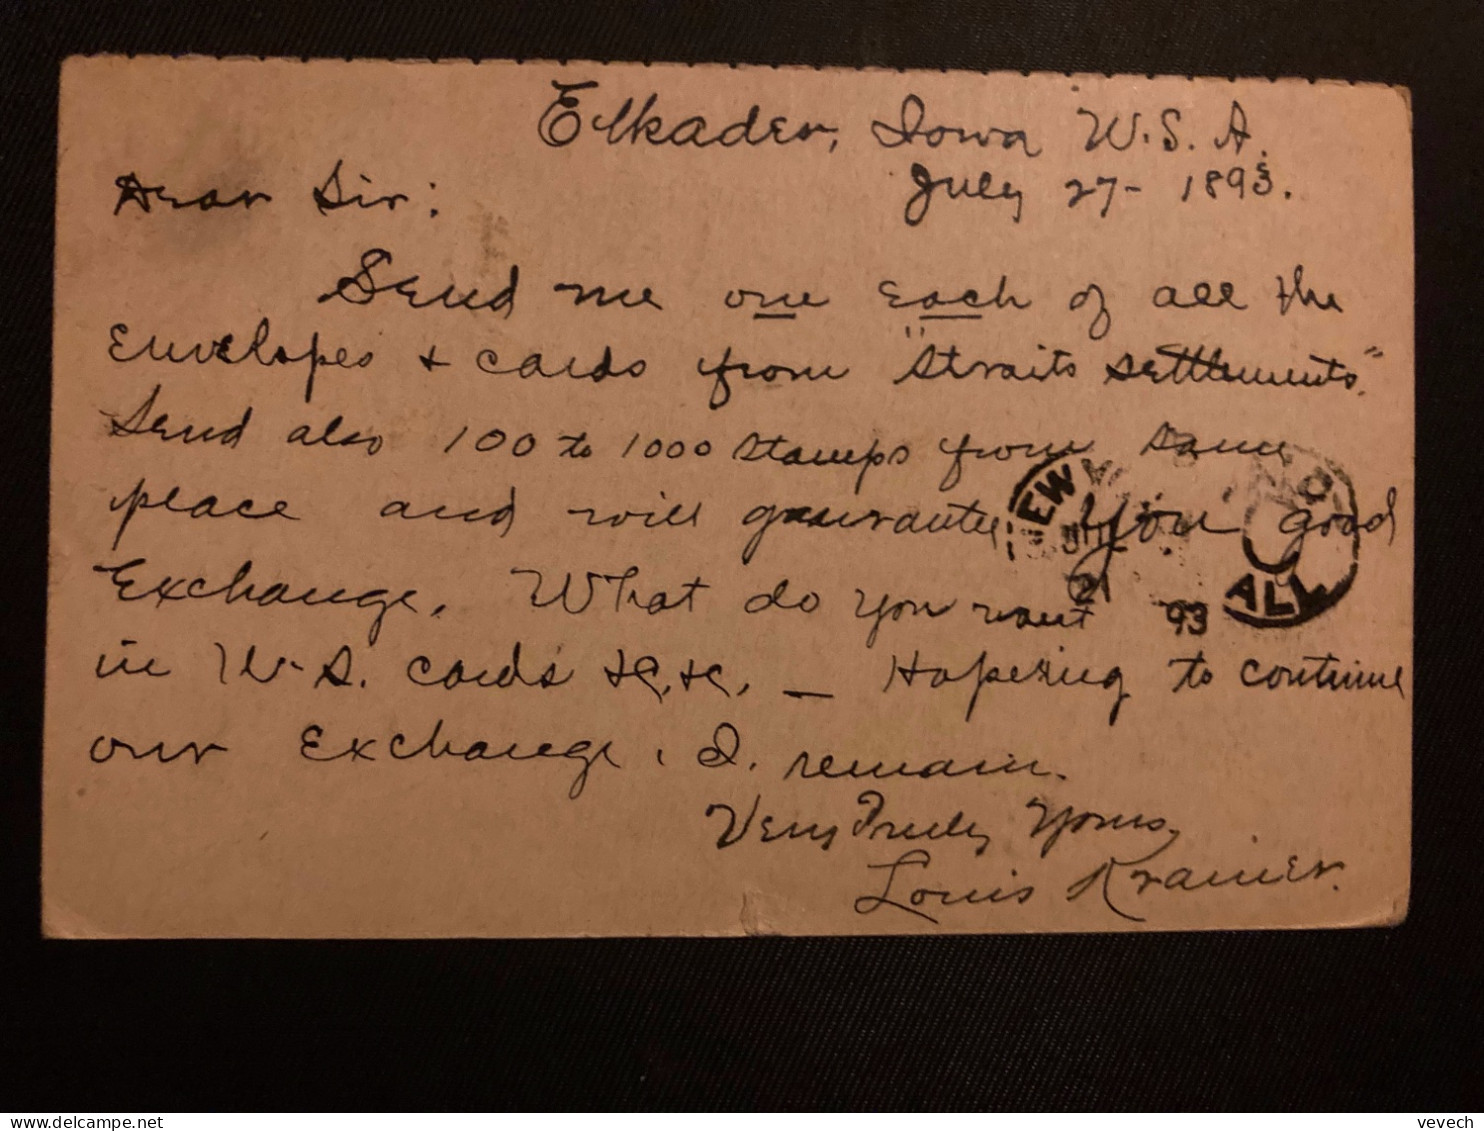 Elkader, Iowa U.S.A.
July 27- 1893.
Dear Sir:
Send me one each of all the
Envelopes & cards from "Straits Settlements."
Send also 100 to 1000 stamps from same
place and will guarantee you good
Exchange. What do you want
in U.S. cards &c, &c, — Hopeing to continue
our Exchange, I. remain.
Very Truly Yours,
Louis
NEW
JUL
21
93
ALL
vevech
www.delcampe.net